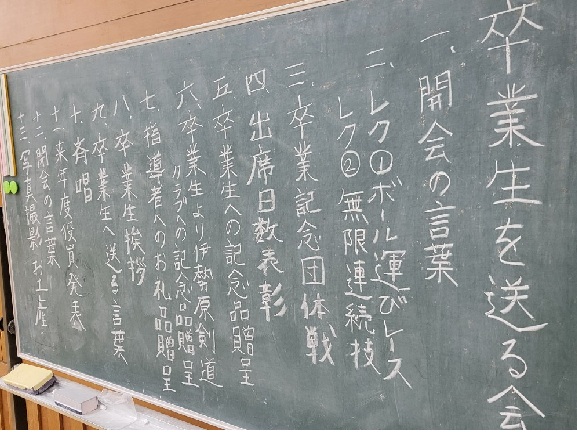 卒業生を送る会
一、開会の言葉
二、レク①ボール運びレース
レク②無限連続技
三、卒業記念団体戦
四、出席日数表彰
五、卒業生への記念品贈呈
六、卒業生より伊勢原剣道
クラブへの記念品贈呈
七、指導者へのお礼品贈呈
八、卒業生挨拶
九、卒業生へ送る言葉
十、斉唱
十一、来年度役員発表
十二、閉会の言葉
十三、写真撮影 お土産